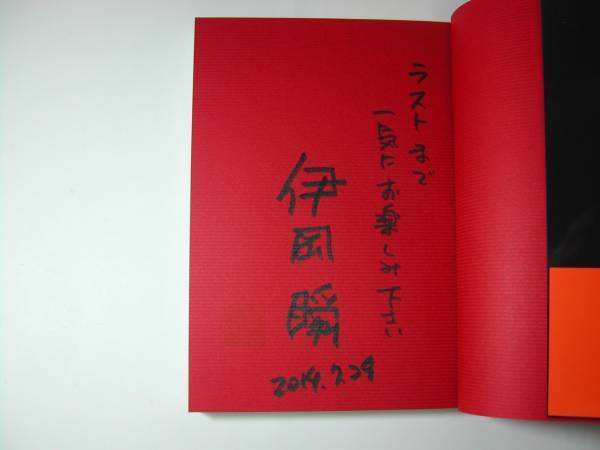 ラストまで
一気にお楽しみ下さい
伊岡 瞬
2014.7.29